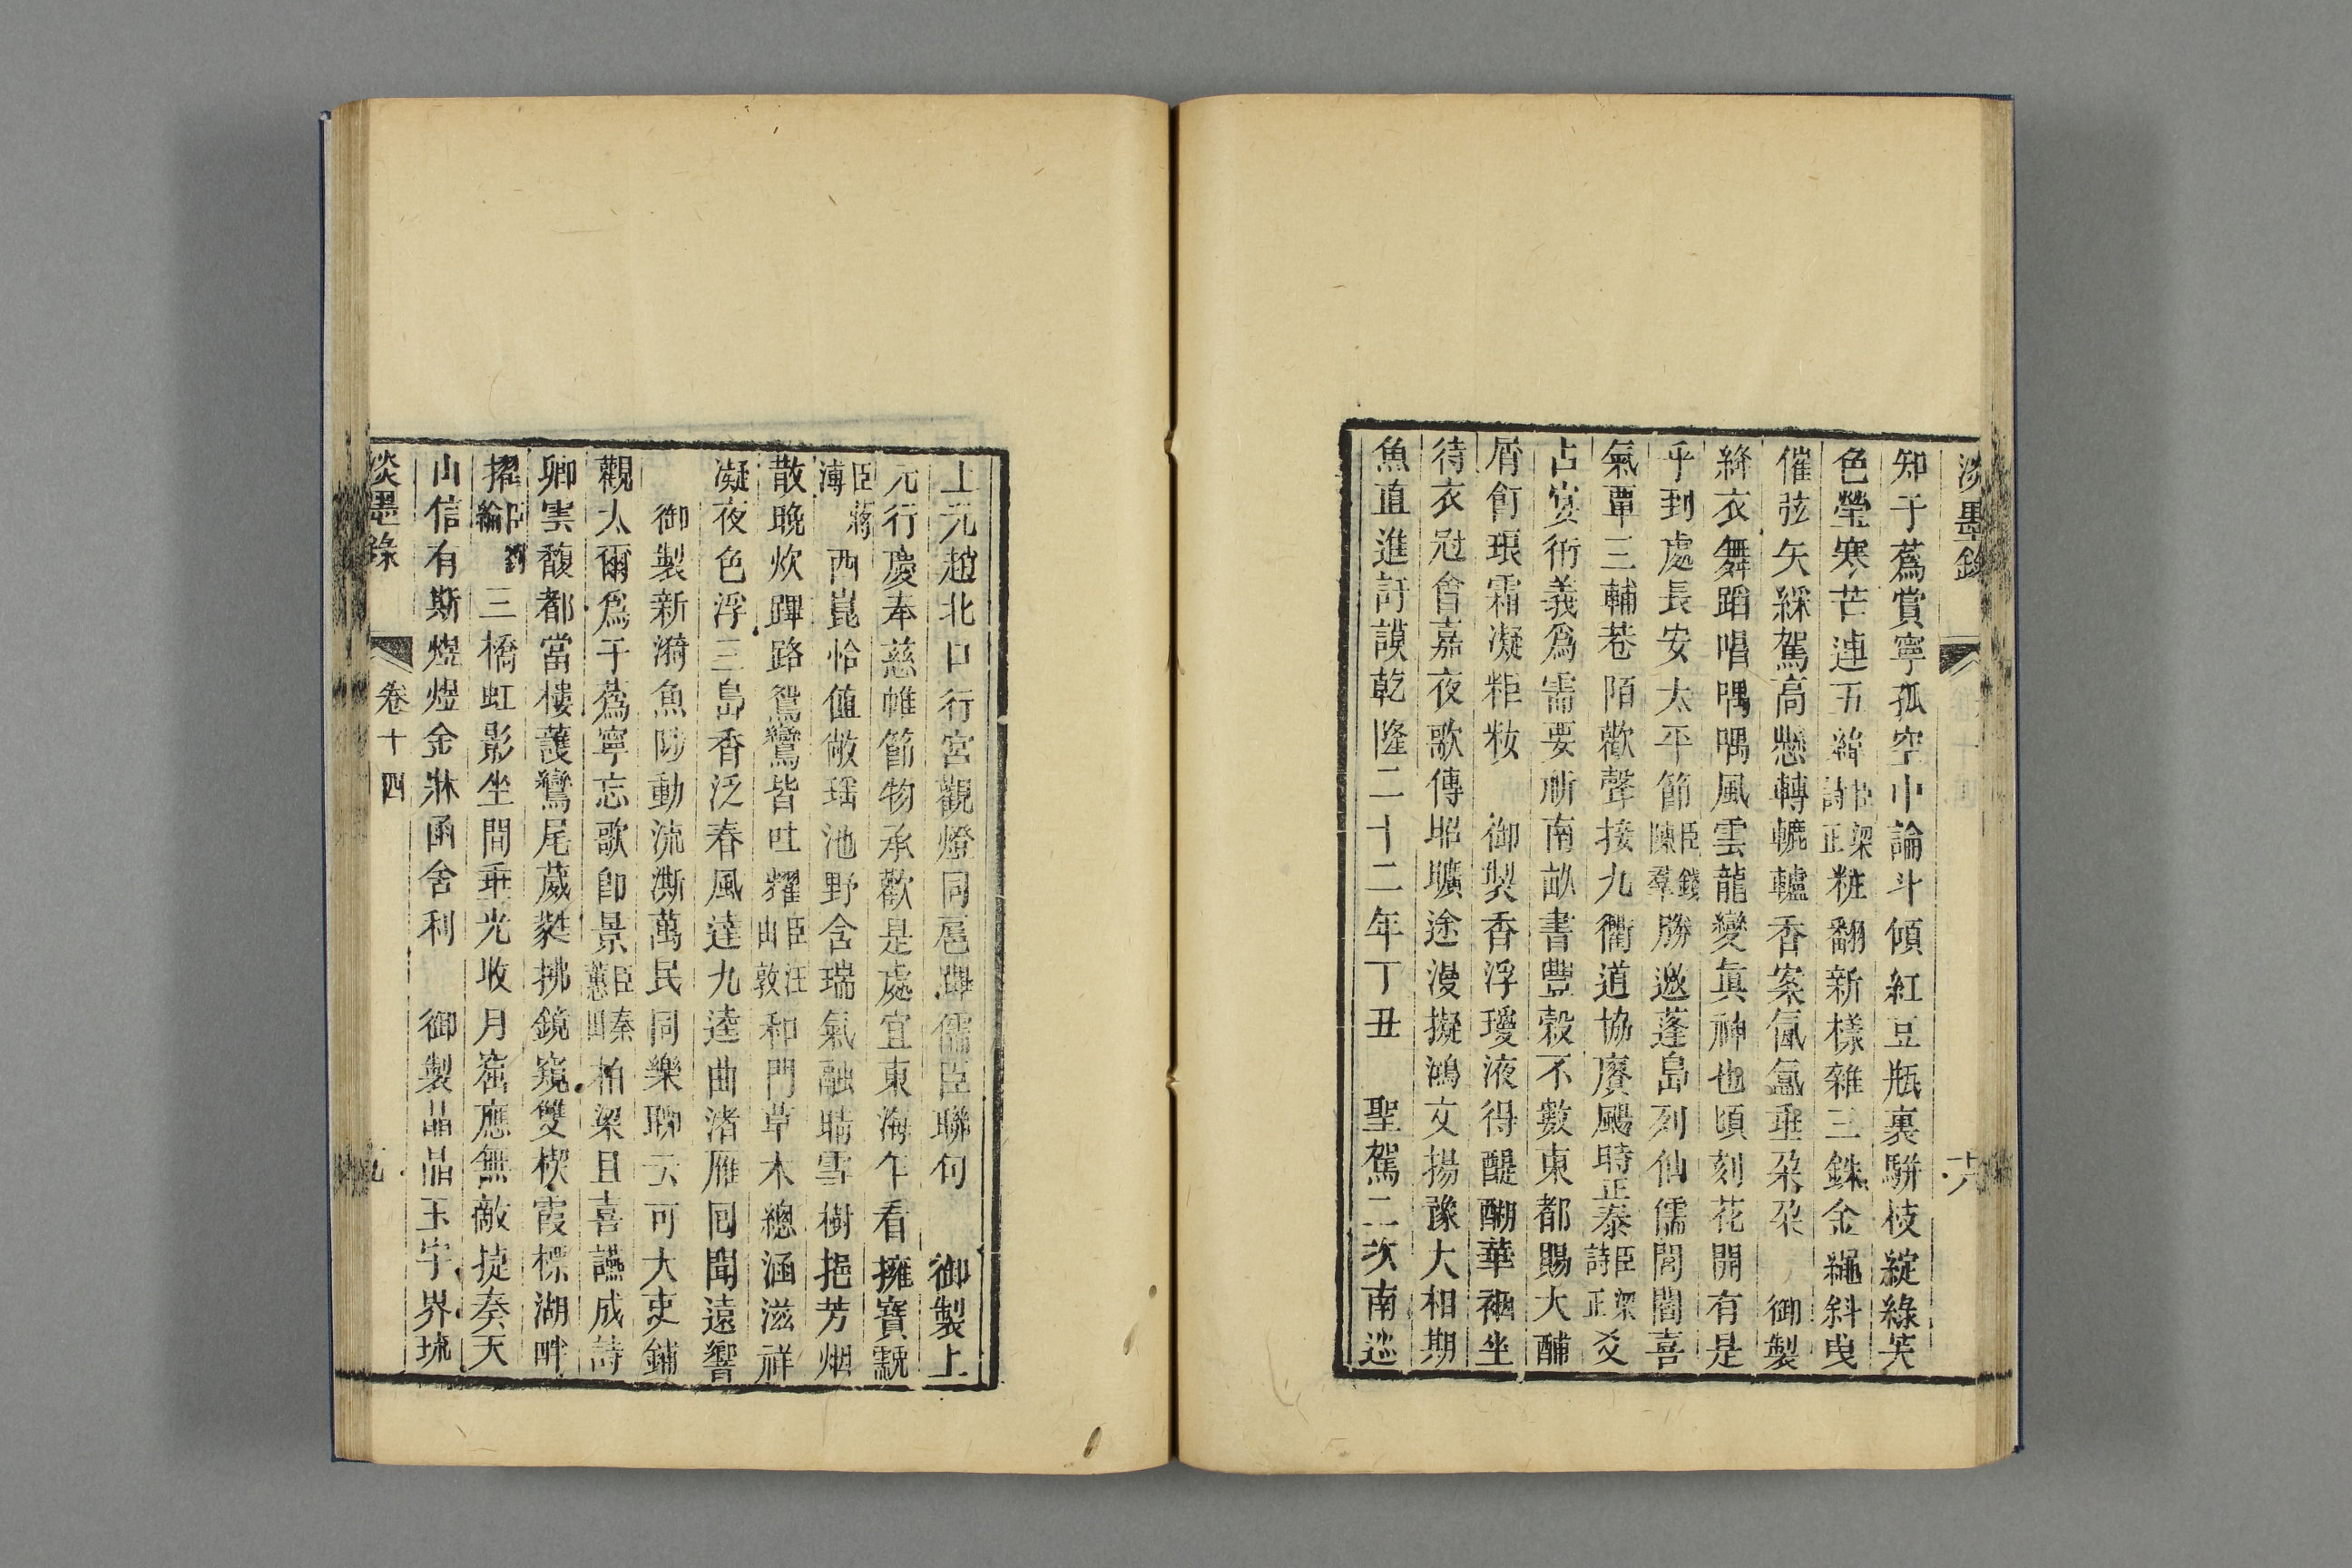 淡墨錄
知于蒍賞寧孤空中論斗傾紅豆瓶裏駢枝綻綠英
色瑩寒芒連五緯臣梁詩正粧翻新樣雜三銖金繩斜曳
催弦矢綵駕高懸轉轆轤香案氤氳垂朶朶 御製
絳衣舞蹈唱喁喁風雲龍變眞神也頃刻花開有是
乎到處長安太平節臣錢陳羣勝邀蓬島列仙儒閭閻喜
氣覃三輔巷陌歡聲接九衢道協賡颺時正泰臣梁詩正爻
占宴衎義爲需要祈南畝書豐穀不數東都賜大酺
屑飣琅霜凝粔籹 御製香浮瓊液得醍醐華裀坐
待衣冠會嘉夜歌傳昭曠途漫擬鴻文揚豫大相期
魚直進訏謨乾隆二十二年丁丑 聖駕二次南巡
上元趙北口行宮觀燈同扈蹕儒臣聯句 御製上
元行慶奉慈帷節物承歡是處宜東海乍看擁寶翽
臣蔣溥西崑恰値敞瑶池野含瑞氣融晴雪樹挹芳烟
散晚炊蹕路鴛鸞皆吐耀臣汪由敦和門草木總涵滋祥
凝夜色浮三島香泛春風達九逵曲渚雁回聞遠響
御製新漪魚陟動流澌萬民同樂聊云可大吏鋪
觀太爾爲于蒍寧忘歌卽景臣秦蕙田柏梁且喜讌成詩
卿雲馥都當樓護鸞尾葳蕤拂鏡窺雙楔霞標湖畔
擢臣劉綸三橋虹影坐間垂光收月窟應無敵捷奏天
山信有斯煜煜金牀函舍利 御製晶晶玉宇界琉
淡墨錄 卷十四